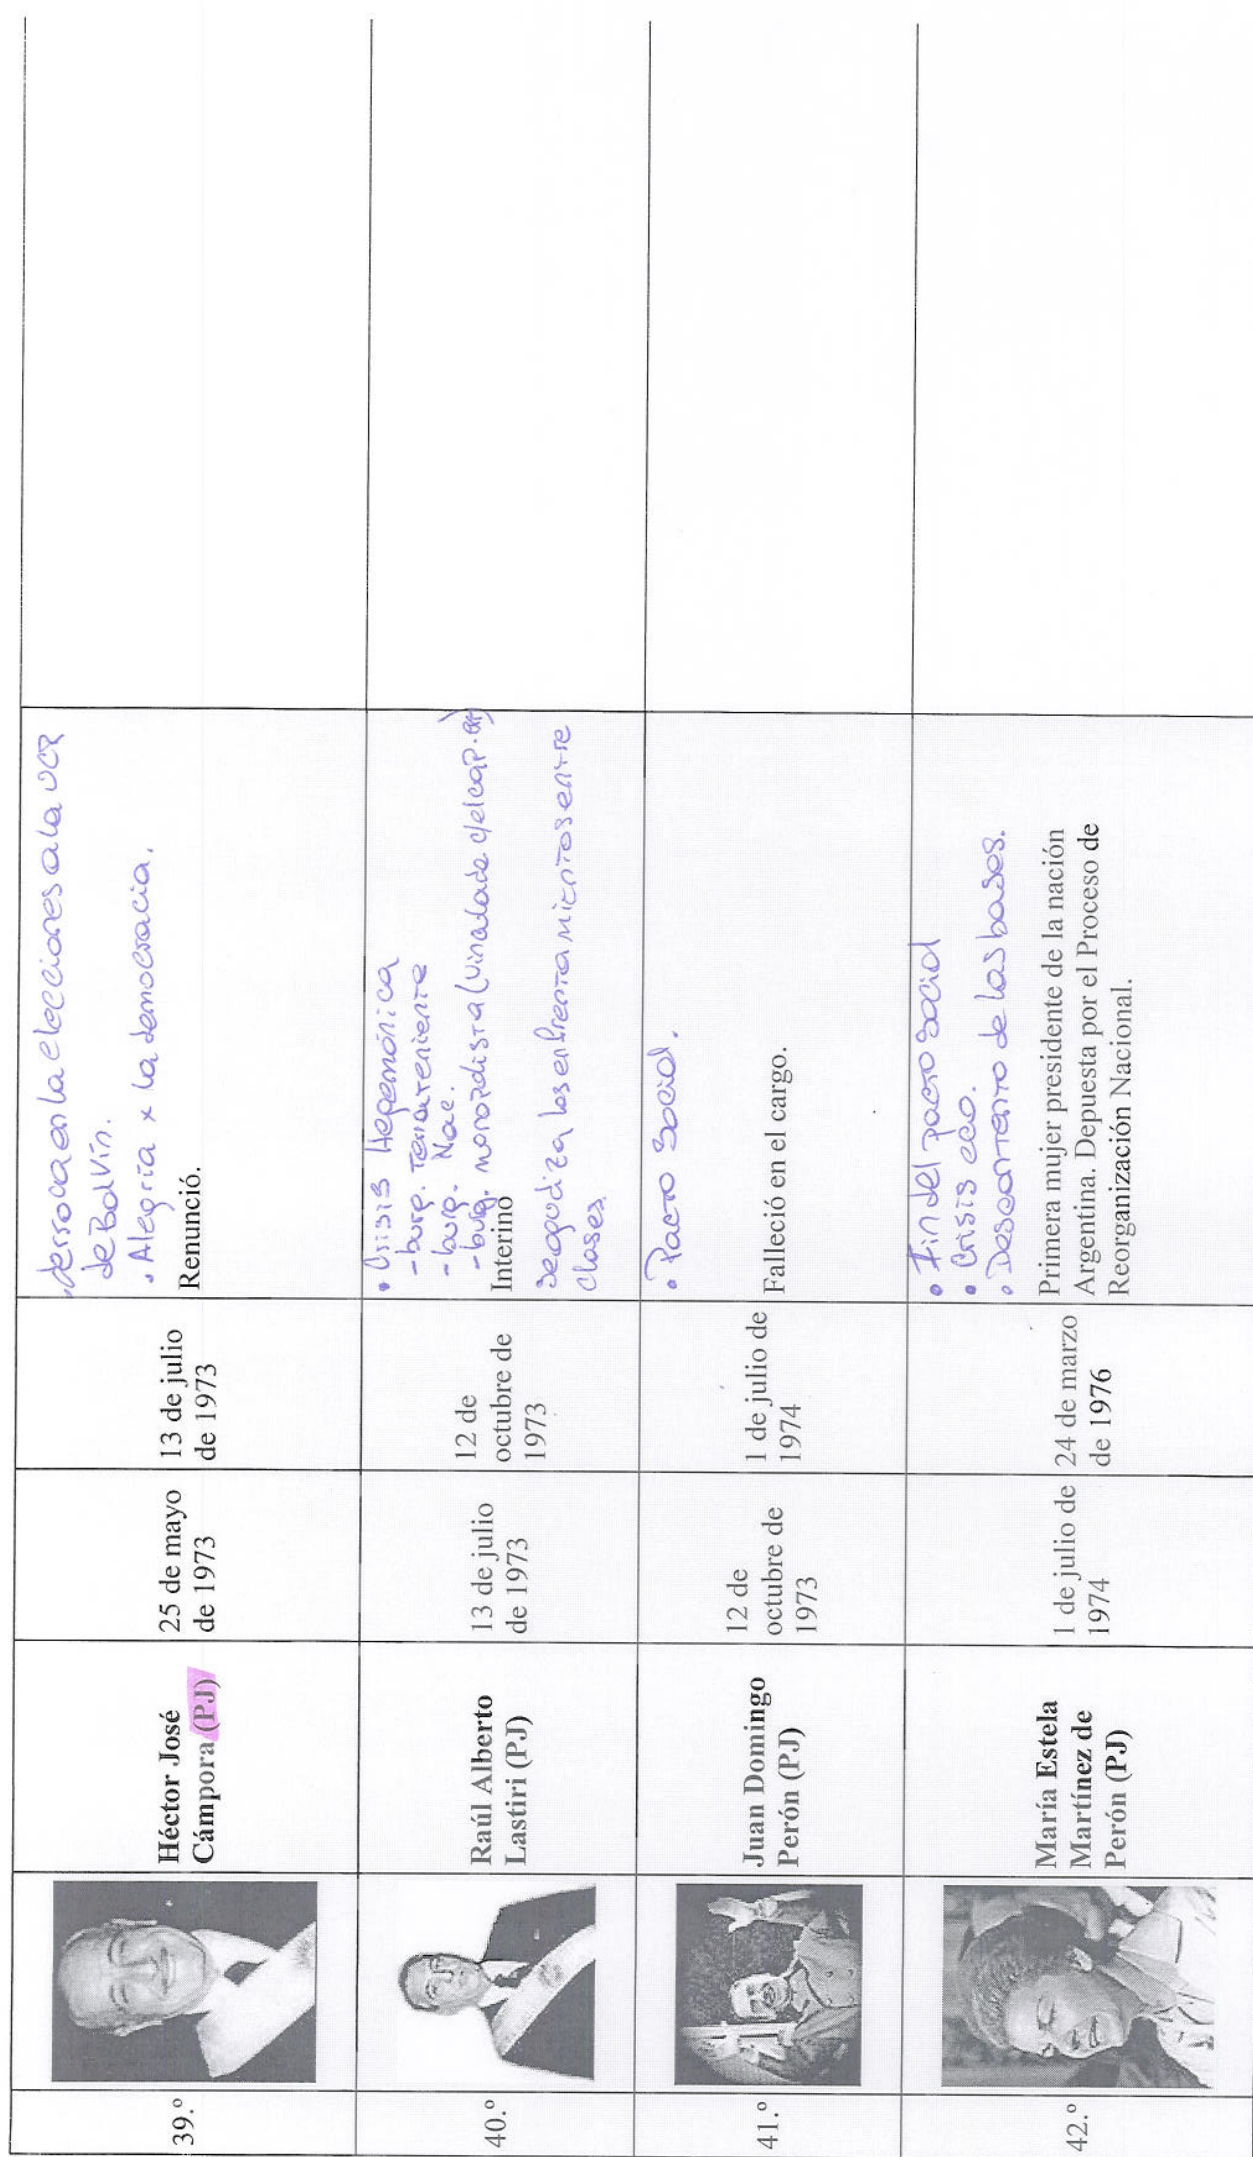 39.º
Héctor José
Cámpora (PJ)
25 de mayo
de 1973
13 de julio
de 1973
derroca en la elecciones a la UCR
de Balvín.
• Alegría x la democracia.
Renunció.
40.º
Raúl Alberto
Lastiri (PJ)
13 de julio
de 1973
12 de
octubre de
1973
• Crisis Hegemónica
- burg. Terrateniente
- burg. Nac.
- burg. monopolista (vinculada c/el cap.
Interino
se agudiza los enfrentamientos entre
clases.
41.º
Juan Domingo
Perón (PJ)
12 de
octubre de
1973
1 de julio de
1974
• Pacto Social.
Falleció en el cargo.
42.º
María Estela
Martínez de
Perón (PJ)
1 de julio de
1974
24 de marzo
de 1976
• Fin del pacto social
• Crisis eco.
• Descontento de las bases.
Primera mujer presidente de la nación
Argentina. Depuesta por el Proceso de
Reorganización Nacional.